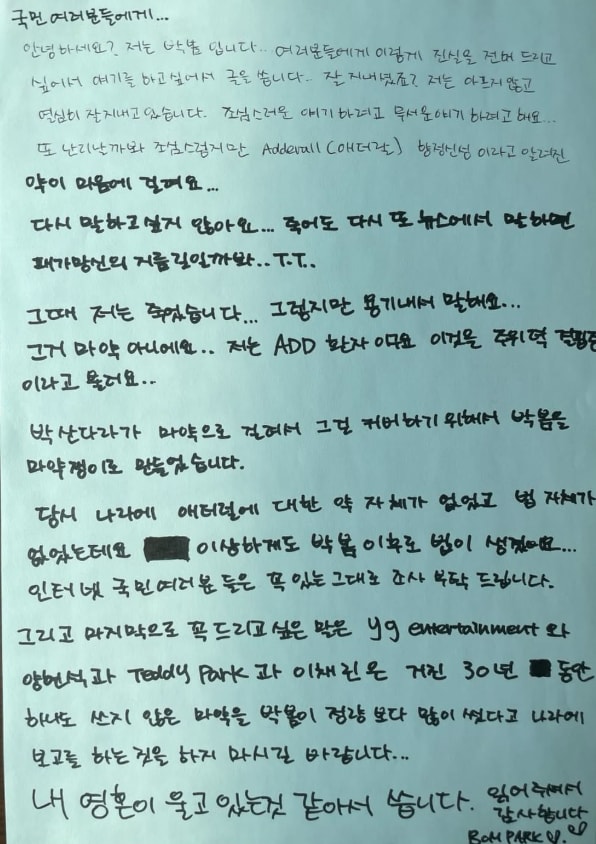 국민 여러분들에게...
안녕하세요? 저는 박봄 입니다... 여러분들에게 이렇게 진실을 전해 드리고
싶어서 얘기를 하고싶어서 글을 씁니다.. 잘 지내셨죠? 저는 아프지 않고
열심히 잘지내고 있습니다. 조심스러운 얘기 하려고 무서운얘기 하려고 해요...
또 난리날까봐 조심스럽지만 Adderall (애더럴) 향정신성 이라고 알려진
약이 마음에 걸려요...
다시 말하고싶지 않아요... 죽어도 다시 또 뉴스에서 말하면
패가망신의 지름길일까봐.. T.T..
그때 저는 죽었습니다... 그렇지만 용기내서 말해요...
그거 마약 아니에요.. 저는 ADD 환자 이구요 이것을 주위력 결핍증
이라고 불러요..
박산다라가 마약으로 걸려서 그걸 커버하기 위해서 박봄을
마약쟁이로 만들었습니다.
당시 나라에 애터럴에 대한 약 자체가 없었고 법 자체가
없었는데요 이상하게도 박봄 이후로 법이 생겼어요...
인터넷 국민여러분 들은 꼭 있는그대로 조사 부탁 드립니다.
그리고 마지막으로 꼭드리고싶은 말은 yg entertainment 와
양현석과 Teddy Park 과 이채린은 거진 30년 동안
하나도 쓰지 않은 마약을 박봄이 정량 보다 많이 썼다고 나라에
보고를 하는것을 하지 마시길 바랍니다...
내 영혼이 울고 있는것 같아서 씁니다. 읽어주셔서
감사합니다
BOM PARK ♡.♡